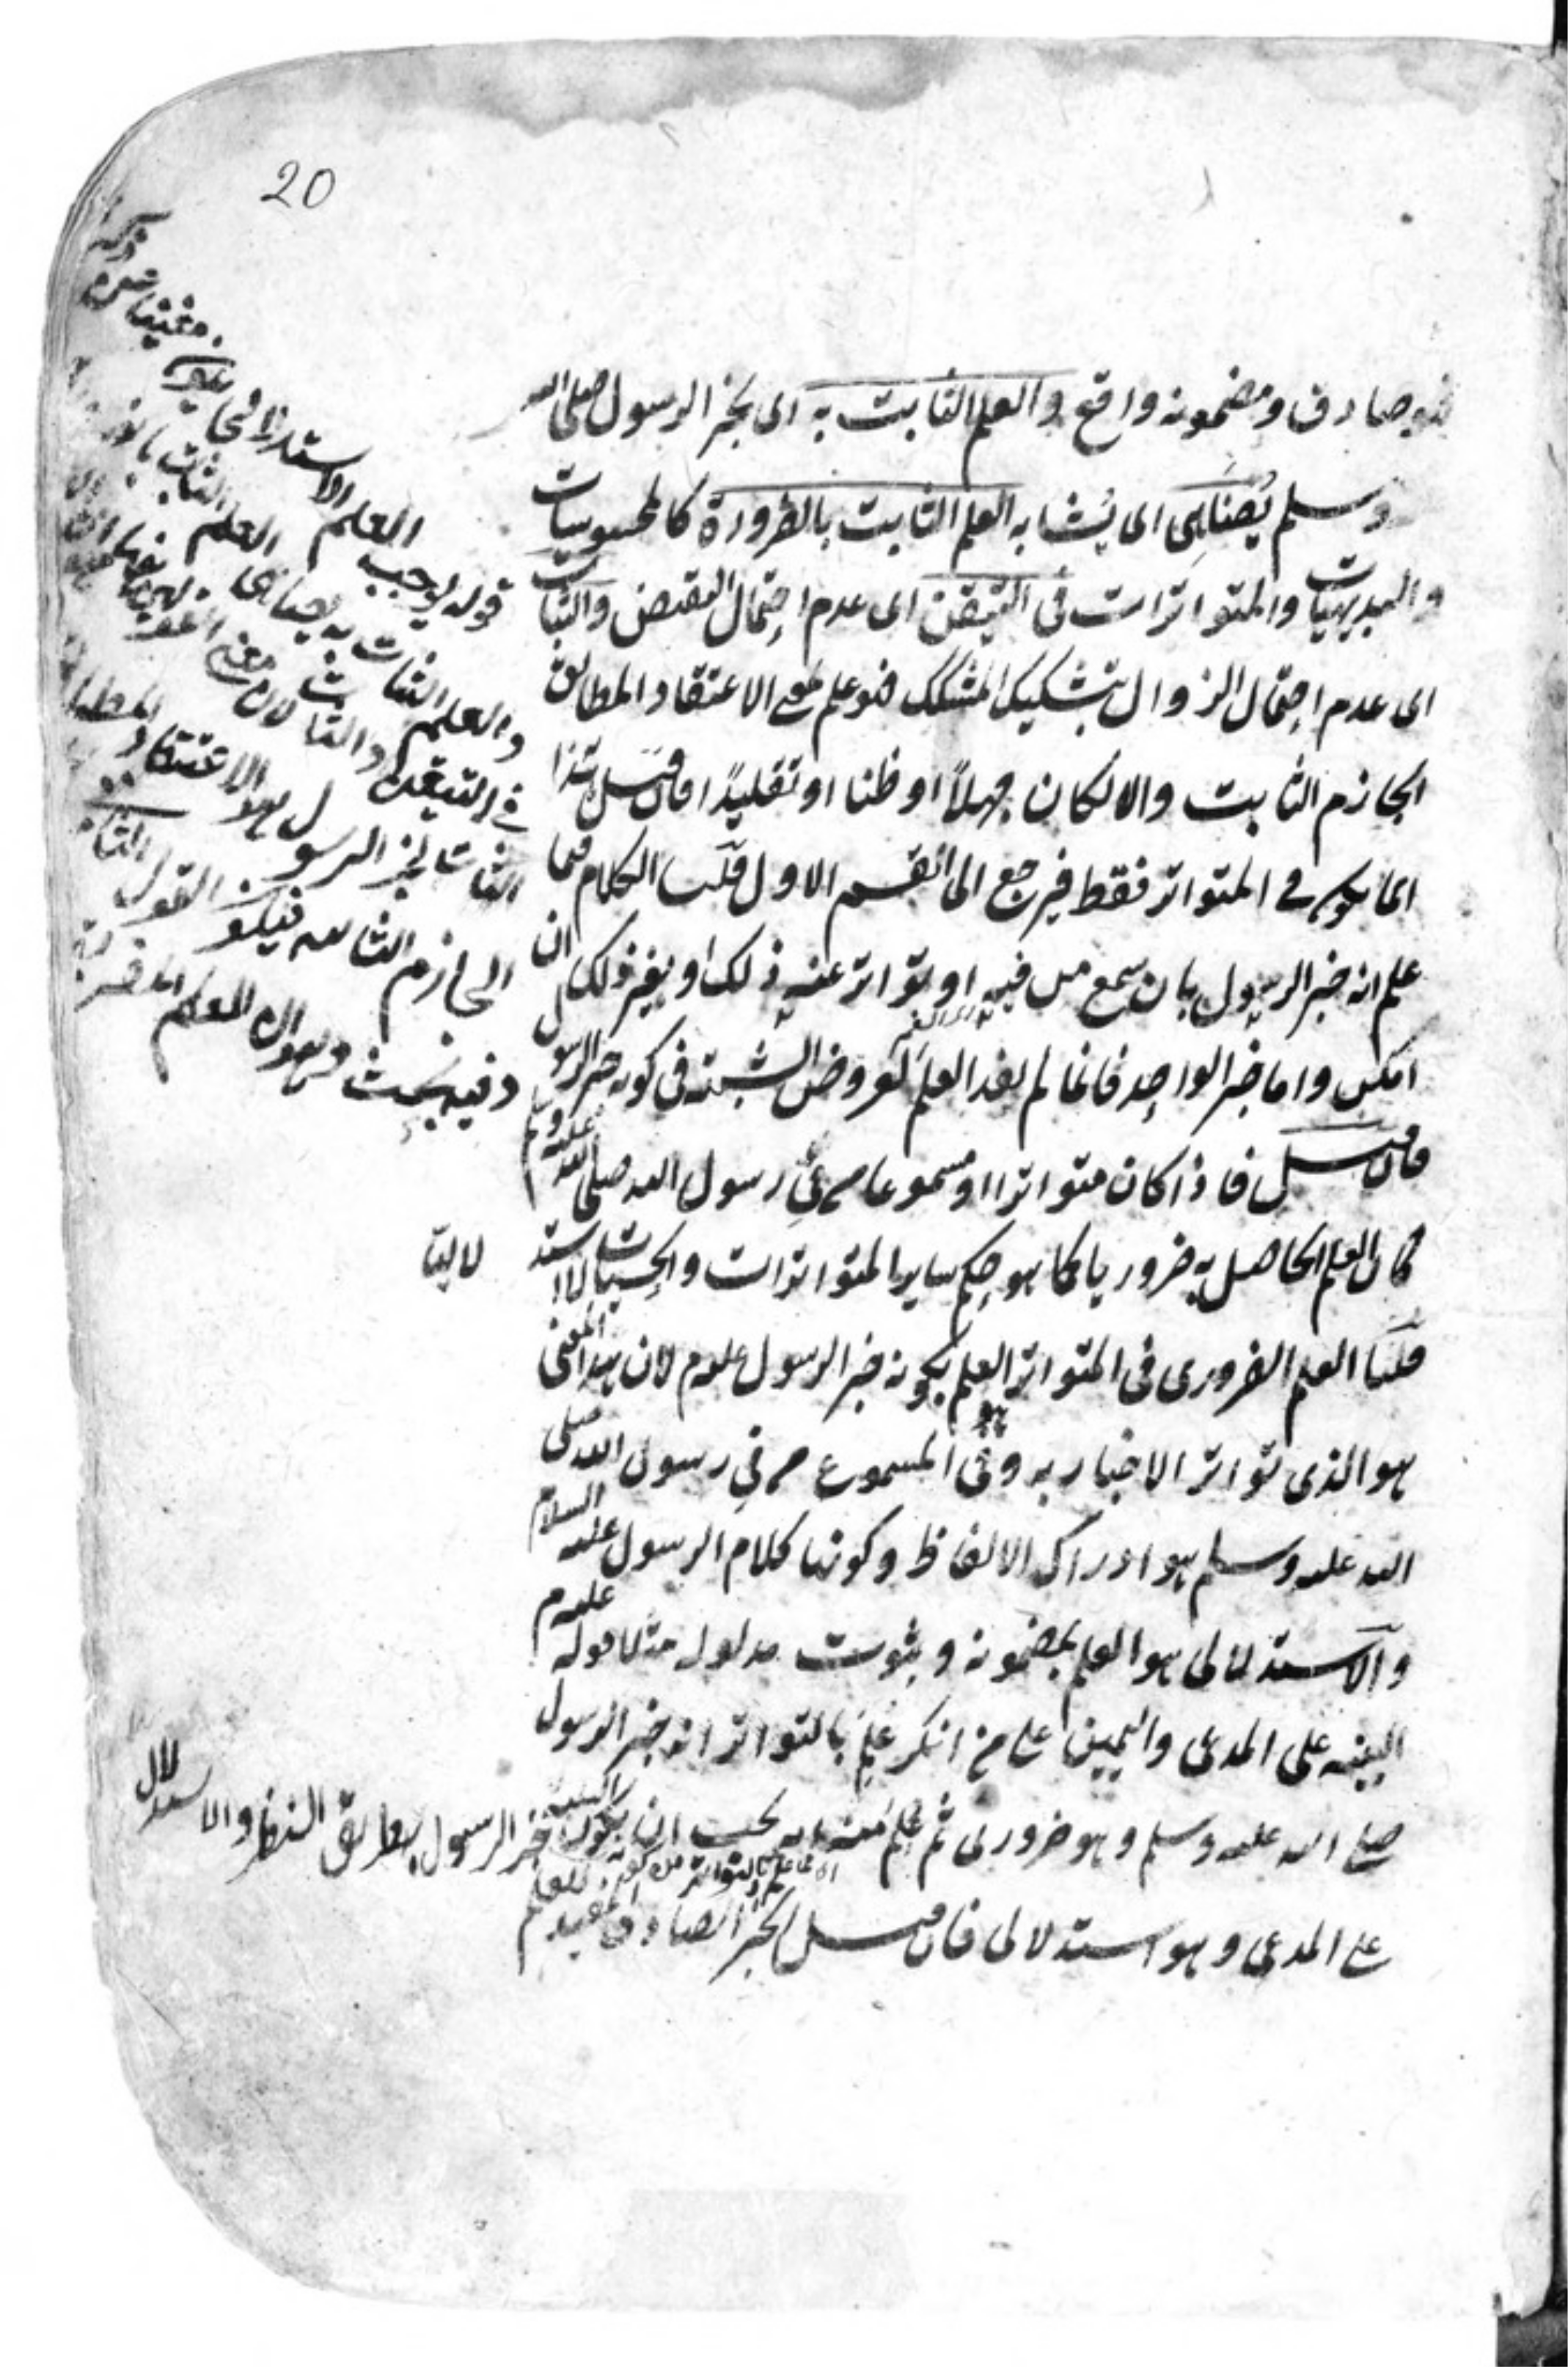 20
فهو صادق ومضمونه واقع والعلم الثابت به اى بخبر الرسول صلى الله
وسلم يُضاهى اى يشابه العلم الثابت بالضرورة كالمحسوسات
والبديهيات والمتواترات فى التيقن اى عدم احتمال النقيض والثبات
اى عدم احتمال الزوال بتشكيك المشكك فهو علم بمعنى الاعتقاد المطابق
الجازم الثابت والا لكان جهلاً او ظنا او تقليدًا فان قيل هذا
انما يكون فى المتواتر فقط فيرجع الى القسم الاول قلنا الكلام فيما
علم انه خبر الرسول بان سمع من فيه او تواتر عنه ذلك او بغير ذلك ان
امكن واما خبر الواحد فانما لم يفد العلم لعروض الشبهة فى كونه خبر الرسول
فان قيل فاذا كان متواترا او مسموعا من فى رسول الله صلى الله عليه وسلم
كان العلم الحاصل به ضروريا كما هو حكم ساير المتواترات والحسيات لا استد
لاليا
قلنا العلم الضرورى فى المتواتر هو العلم بكونه خبر الرسول علم لان هذا المعنى
هو الذى تواتر الاخبار به وفى المسموع من فى رسول الله صلى
الله عليه وسلم هو ادراك الالفاظ وكونها كلام الرسول عليه السلام
والاستدلالى هو العلم بمضمونه وثبوت مدلوله مثلا قوله عليه م
البينه على المدعى واليمين على من انكر عُلِمَ بالتواتر انه خبر الرسول
صلى الله عليه وسلم وهو ضرورى ثم علم منه انه يجب ان يكون البينة
على المدعى وهو استدلالى فان قيل الخبر الصادق المفيد للعلم
خبر الرسول بطريق النظر والاستدلال
قوله يوجب العلم الاستدلالى
والعلم الثابت به يضاهى العلم الثابت
فى التيقن والثبات
الثابت بخبر الرسول هو الاعتقاد المطابق
الجازم الثابت فيكون القول
وفيه بحث وهو ان العلم